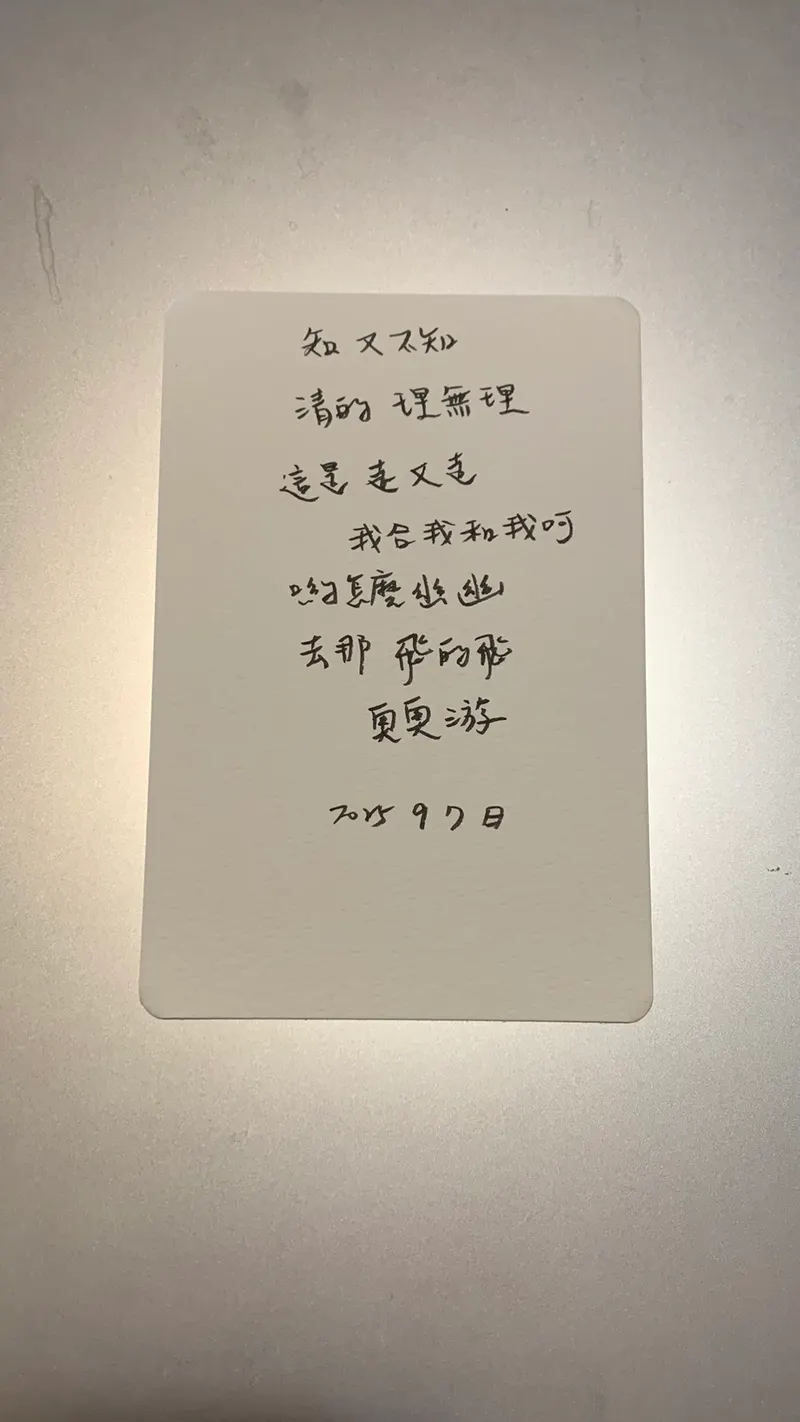 知又不知
清的 理無理
這是 走又走
我合我和我呵
喲怎麼幽幽
去那 飛的飛
奧奧游
2025 9 7 日